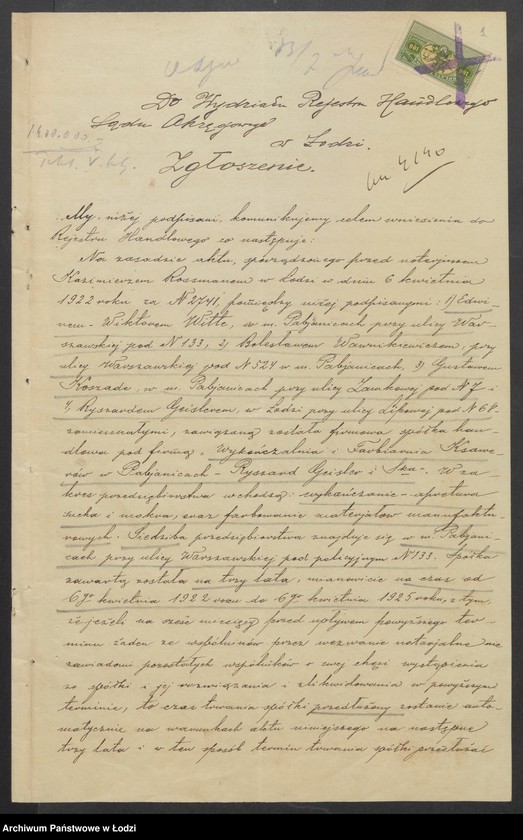 1
Do Wydziału Rejestru Handlowego
Sądu Okręgowego
w Łodzi.
Zgłoszenie.
My, niżej podpisani, komunikujemy celem wniesienia do
Rejestru Handlowego co następuje:
Na zasadzie aktu, sporządzonego przed notarjuszem
Kazimierzem Rossmanem w Łodzi w dniu 6 kwietnia
1922 roku za N 2741, pomiędzy niżej podpisanymi: 1) Edwi-
nem-Wiktorem Witte, w m. Pabjanicach przy ulicy War-
szawskiej pod N 133, 2) Bolesławem Wawnikiewiczem, przy
ulicy Warszawskiej pod N 524 w m. Pabjanicach, 3) Gustawem
Koszade, w m. Pabjanicach przy ulicy Zamkowej pod N 7 i
4) Ryszardem Geislerem, w Łodzi przy ulicy Lipowej pod N 68
zamieszkałymi, zawiązaną została firmowa spółka han-
dlowa pod firmą: "Wykończalnia i Farbiarnia Ksawe-
rów w Pabjanicach - Ryszard Geisler i Ska". W za-
kres przedsiębiorstwa wchodzą: wykańczanie - apretura
sucha i mokra, oraz farbowanie materjałów manufaktu-
rowych. Siedziba przedsiębiorstwa znajduje się w m. Pabjani-
cach przy ulicy Warszawskiej pod policyjnym N 133. Spółka
zawartą została na trzy lata, mianowicie na czas od
6go kwietnia 1922 roku do 6go kwietnia 1925 roku, z tym,
że jeżeli na sześć miesięcy przed upływem powyższego ter-
minu żaden ze wspólników przez wezwanie notarjalne nie
zawiadomi pozostałych wspólników o swej chęci wystąpienia
ze spółki i jej rozwiązania i zlikwidowania w powyższym
terminie, to czas trwania spółki przedłużony zostanie auto-
matycznie na warunkach aktu niniejszego na następne
trzy lata i w ten sposób termin trwania spółki przedłużać
Archiwum Państwowe w Łodzi